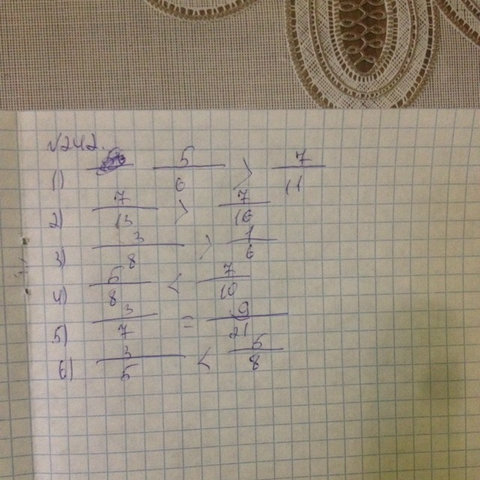 №242.
1) 5/6 > 7/11
2) 7/13 > 7/16
3) 3/8 > 1/6
4) 5/8 < 7/10
5) 3/7 = 9/21
6) 3/5 < 5/8